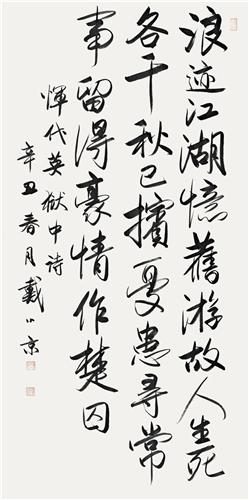 浪迹江湖憶舊游故人生死
各千秋已擯憂患尋常
事留得豪情作楚囚
惲代英獄中诗
辛丑春月戴小京